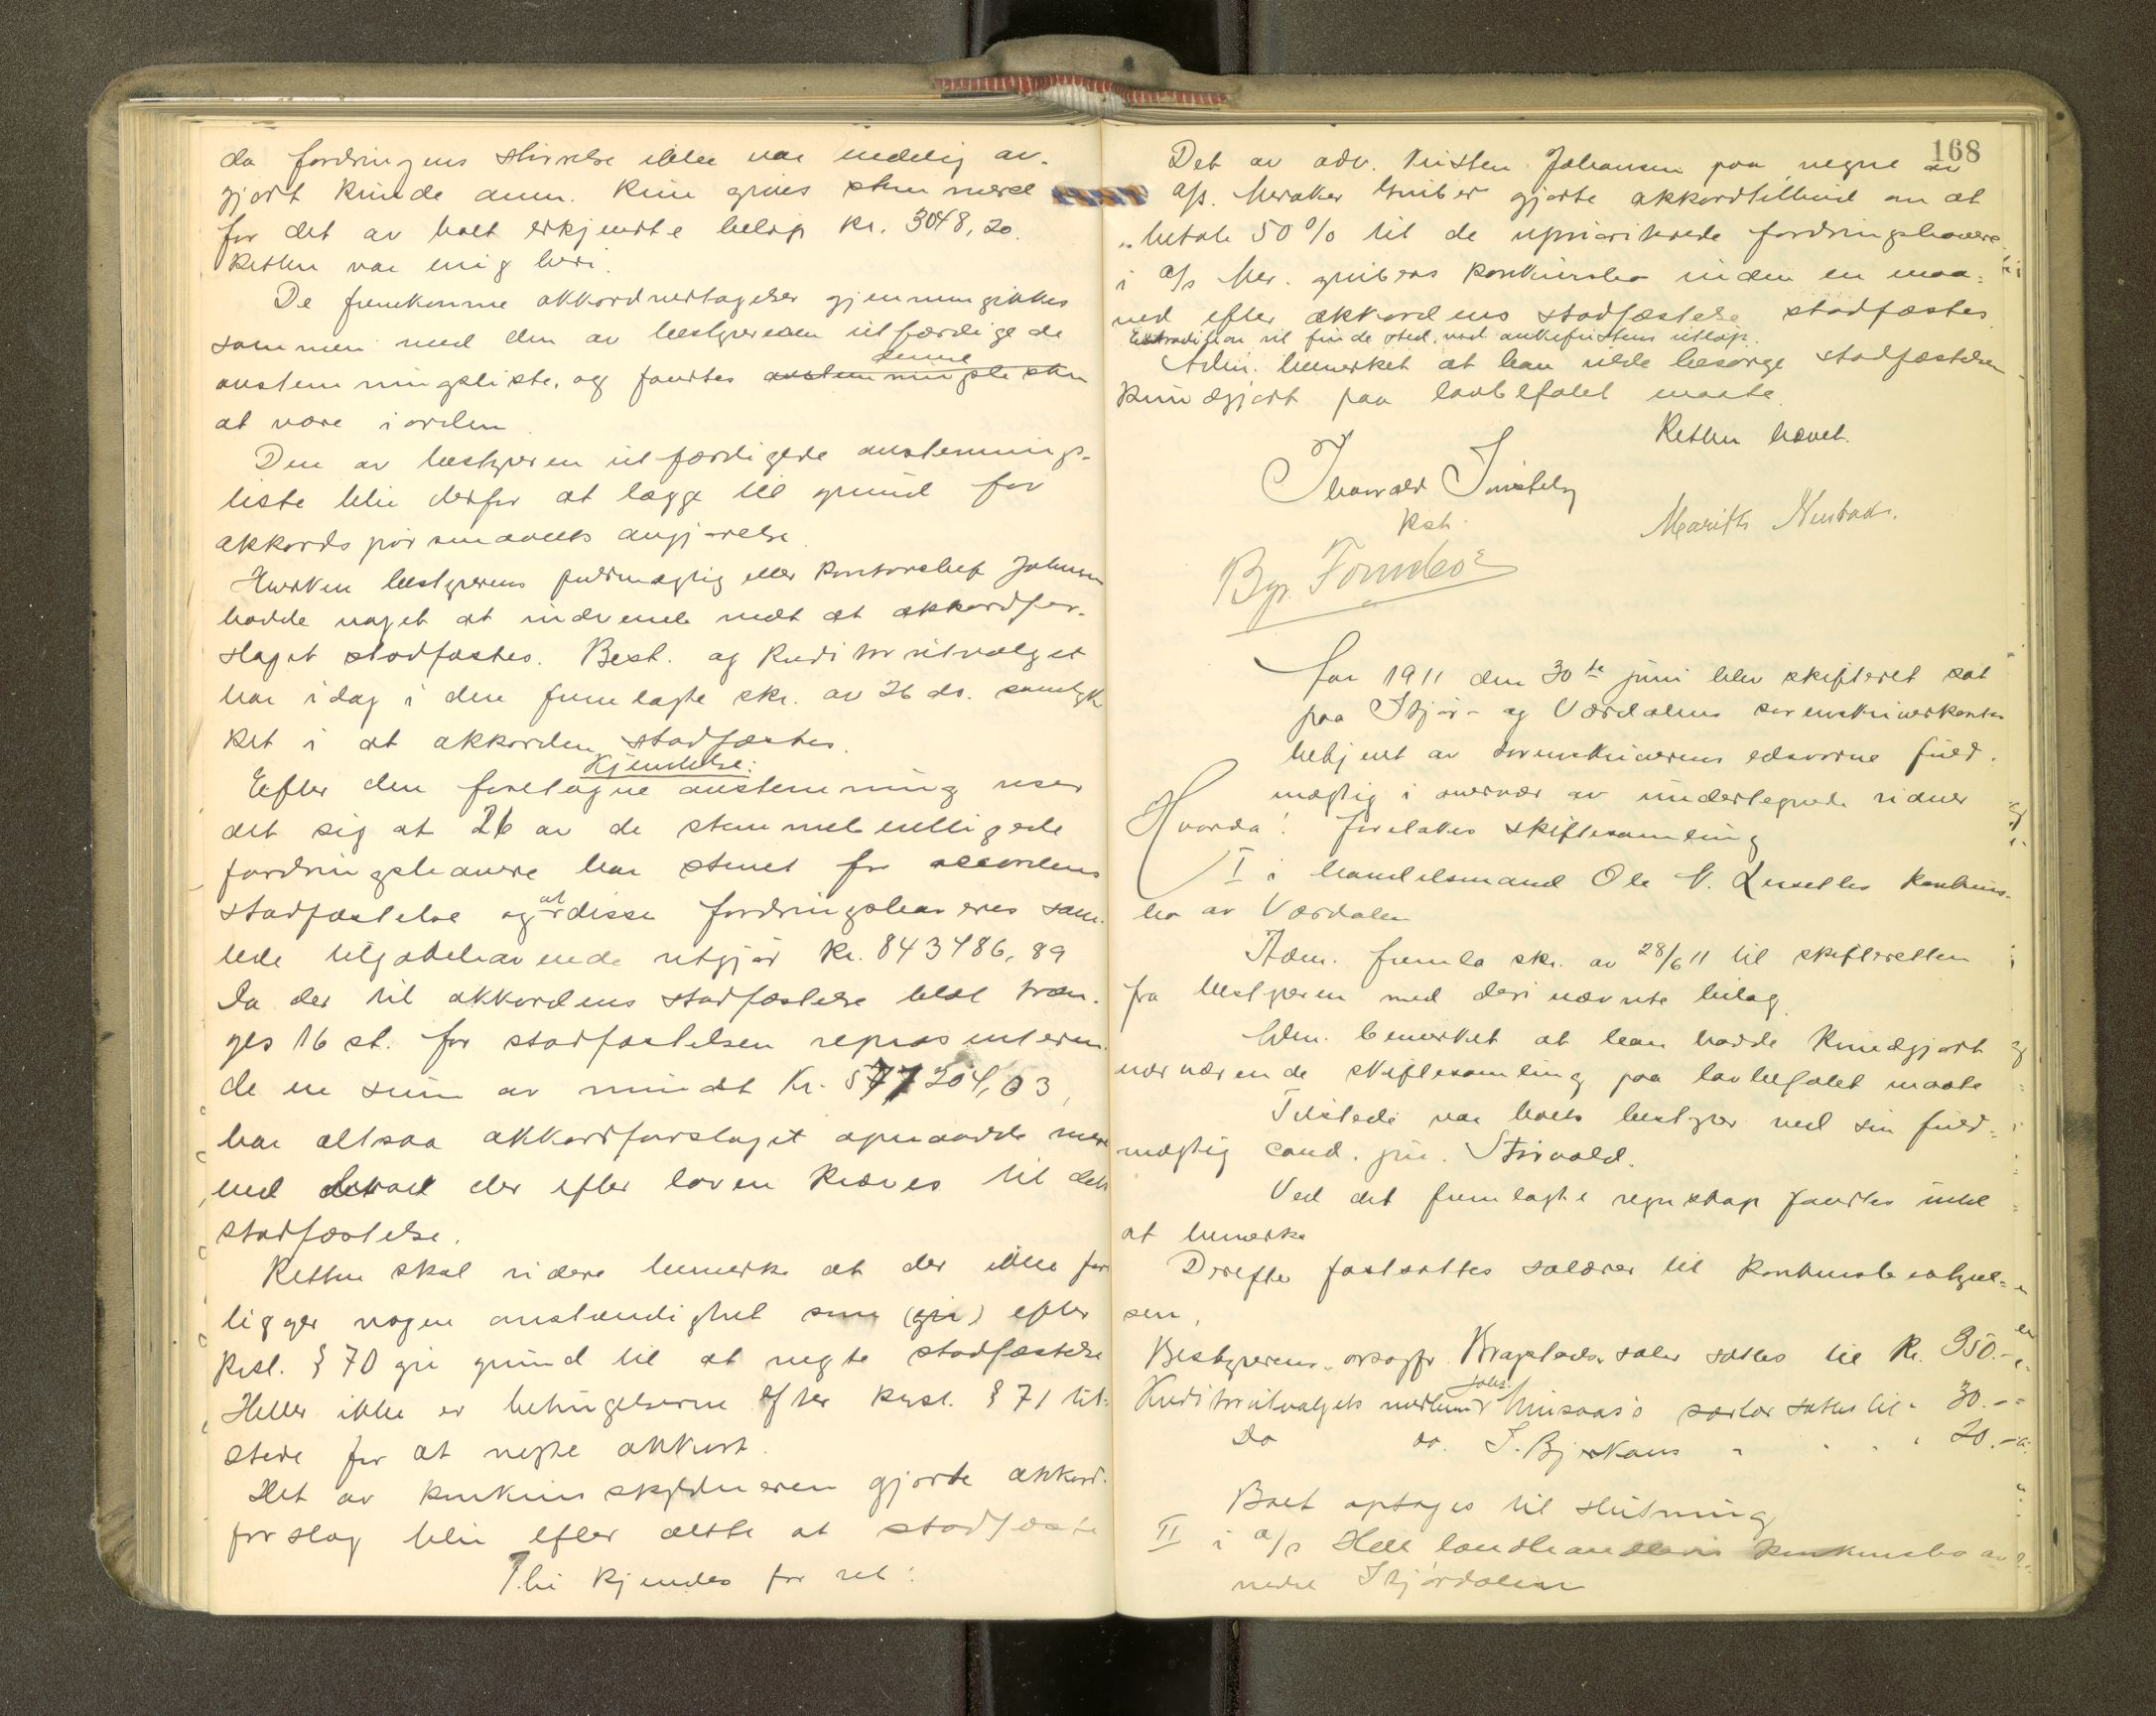 da fordringens størrelse ikke var endelig av-
gjort kunde anm. kun gives stemmeret
for det av boet erkjendte beløp kr. 3048,20.
Retten var enig heri.
De fremkomne akkordvedtagelser gjennemgikkes
sammen med den av bestyreren utfærdigede
avstemningsliste, og fandtes avstemningslisten denne
at være i orden.
Den av bestyreren utfærdigede avstemnings-
liste blir derfor at lægge til grund for
akkordspørsmaalets avgjørelse.
Hverken bestyrerens fuldmægtig eller kontorchef Johnsen
hadde noget at indvende mot at akkordfor-
slaget stadfæstes. Best. og kreditorutvalget
har idag i den fremlagte skr. av 26 ds. samtyk
ket i at akkorden stadfæstes.
Kjendelse:
Efter den foretagne avstemning viser
det sig at 26 av de stemmeberettigede
fordringshavere har stemt for accordens
stadfæstelse og at disse fordringshaveres sam-
lede tilgodehavende utgjør kr. 843486,89
Da der til akkordens stadfæstelse blot træn-
ges 16 st. for stadfæstelsen repræsenteren-
de en sum av mindst kr. 577204,03,
har altsaa akkordforslaget opnaadd mere
end det der efter loven kræves til dets
stadfæstelse.
Retten skal videre bemerke at der ikke fore
ligger nogen omstændighet som (gir) efter
kskl. § 70 gir grund til at negte stadfæstelse
Heller ikke er betingelserne efter kskl. § 71 til-
stede for at negte akkord.
Det av konkursskyldneren gjorte akkord-
forslag blir efter dette at stadfæste
Thi kjendes for ret:
168
Det av adv. Kristen Johansen paa vegne av
A/s. Meraker Gruber gjorte akkordtilbud om at
betale 50 % til de uprioriterede fordringshavere
i A/s Mer. grubers konkursbo inden en maa-
ned efter akkordens stadfæstelse stadfæstes
Extradition vil finde sted ved ankefristens utløp.
Adm. bemerket at han vilde besørge stadfæstelsen
kundgjort paa lovbefalet maate.
Retten hævet.
Thorvald
Kst.
Marith
Bgr.
Aar 1911 den 30te juni blev skifteret sat
paa Stjør- og Værdalens sorenskriverkontor
betjent av sorenskriverens edsvorne fuld-
mægtig i overvær av undertegnede vidner
Hvorda! foretokes skiftesamling
I i handelsmand Ole N. konkurs-
bo av Værdalen
Adm. fremla skr. av 28/6 11 til skifteretten
fra bestyreren med deri nævnte bilag.
Adm. bemerket at han hadde kundgjort
nærværende skiftesamling paa lovbefalet maate
Tilstede var boets bestyrer ved sin fuld-
mægtig cand. jur. Strivold.
Ved det fremlagte regnskap fandtes intet
at bemerke
Derefter fastsattes salærer til konkursbestyrel-
sen,
Bestyrerens, orsagfr. salær sattes til kr. 350.-
Kreditorutvalgets medlem Johs. salær sattes til " 30.-
Do do. S. Bjerkans " " " " 20.-
Boet optages til slutning
II i A/s Hell landhandleris konkursbo av
nedre Stjørdalen